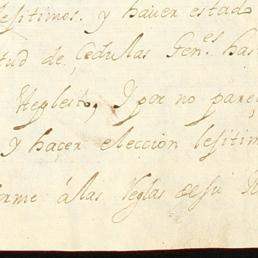 lesitimos. y haver estado
tud de Cedulas Gen.es has
Hegleito, Y por no pareç
Y haçer elecçion lesitim
orme álas Reglas desu R